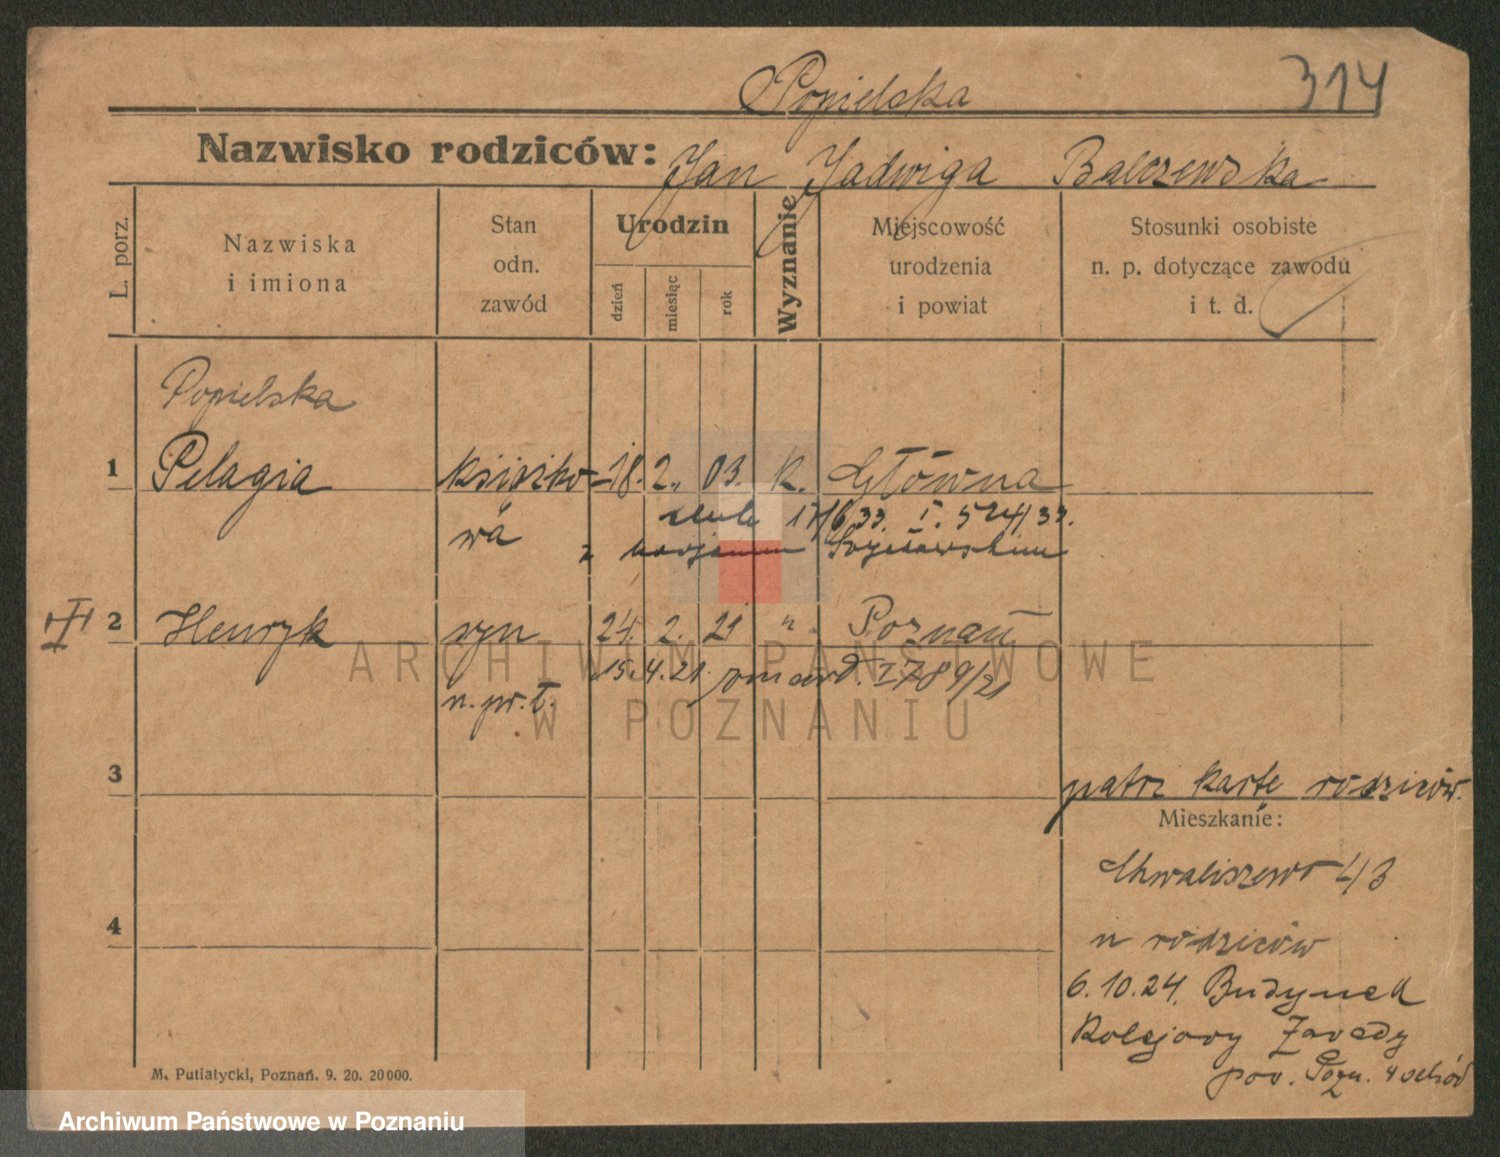 Popielska
314
Nazwisko rodziców: Jan Jadwiga Balczewska
L. porz.
Nazwiska
i imiona
Stan
odn.
zawód
Urodzin
dzień
miesiąc
rok
Wyznanie
Miejscowość
urodzenia
i powiat
Stosunki osobiste
n. p. dotyczące zawodu
i t. d.
Popielska
1 Pelagia książko- 18. 2. 03. k. Główna
wa
17/6 33. I. 524/33.
z
2 Henryk syn 24. 2. 21 " Poznań
15.4.21. zmarł. I 789/21
n. pr. ł.
ARCHIWUM PAŃSTWOWE
W POZNANIU
3
patrz kartę rodziców.
Mieszkanie:
Chwaliszewo 43
u rodziców
4
6.10.24. Budynek
Kolejowy Zawady
pow. Pozn. 4 schód
M. Putiatycki, Poznań. 9. 20. 20000.
Archiwum Państwowe w Poznaniu